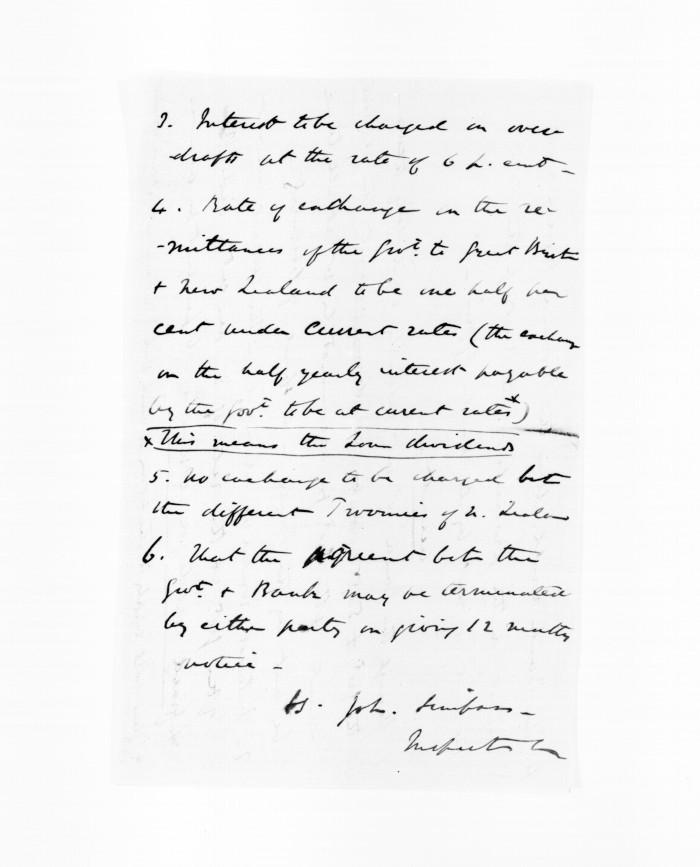 3. Interest to be charged on over
drafts at the rate of 6 p. cent -
4. Rate of exchange on the re-
-mittances of the Govt. to Great Brit
& New Zealand to be one half per
cent under current rates (the exchange
on the half yearly interest payable
by the Govt. to be at current rates*)
x This means the Loan dividends
5. No exchange to be charged bet
the different of N. Zealan
6. That the agreent bet the
Govt. & Bank may be terminated
by either party on giving 12 months
notice -
Joh.
Inspector